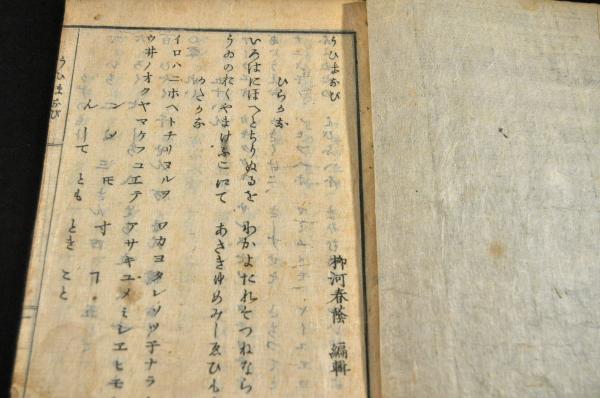 うひまなび
柳河春蔭 編輯
ひらかな
いろはにほへとちりぬるを わかよたれそつねなら
うゐのおくやまけふこにて あさきゆめみしゑひも
かたかな
イロハニホヘトチリヌルヲ ワカヨタレソツ子ナラ
ウ井ノオクヤマケフコエテ アサキユメミシエヒモ
んして とも とき こと
うひまなび